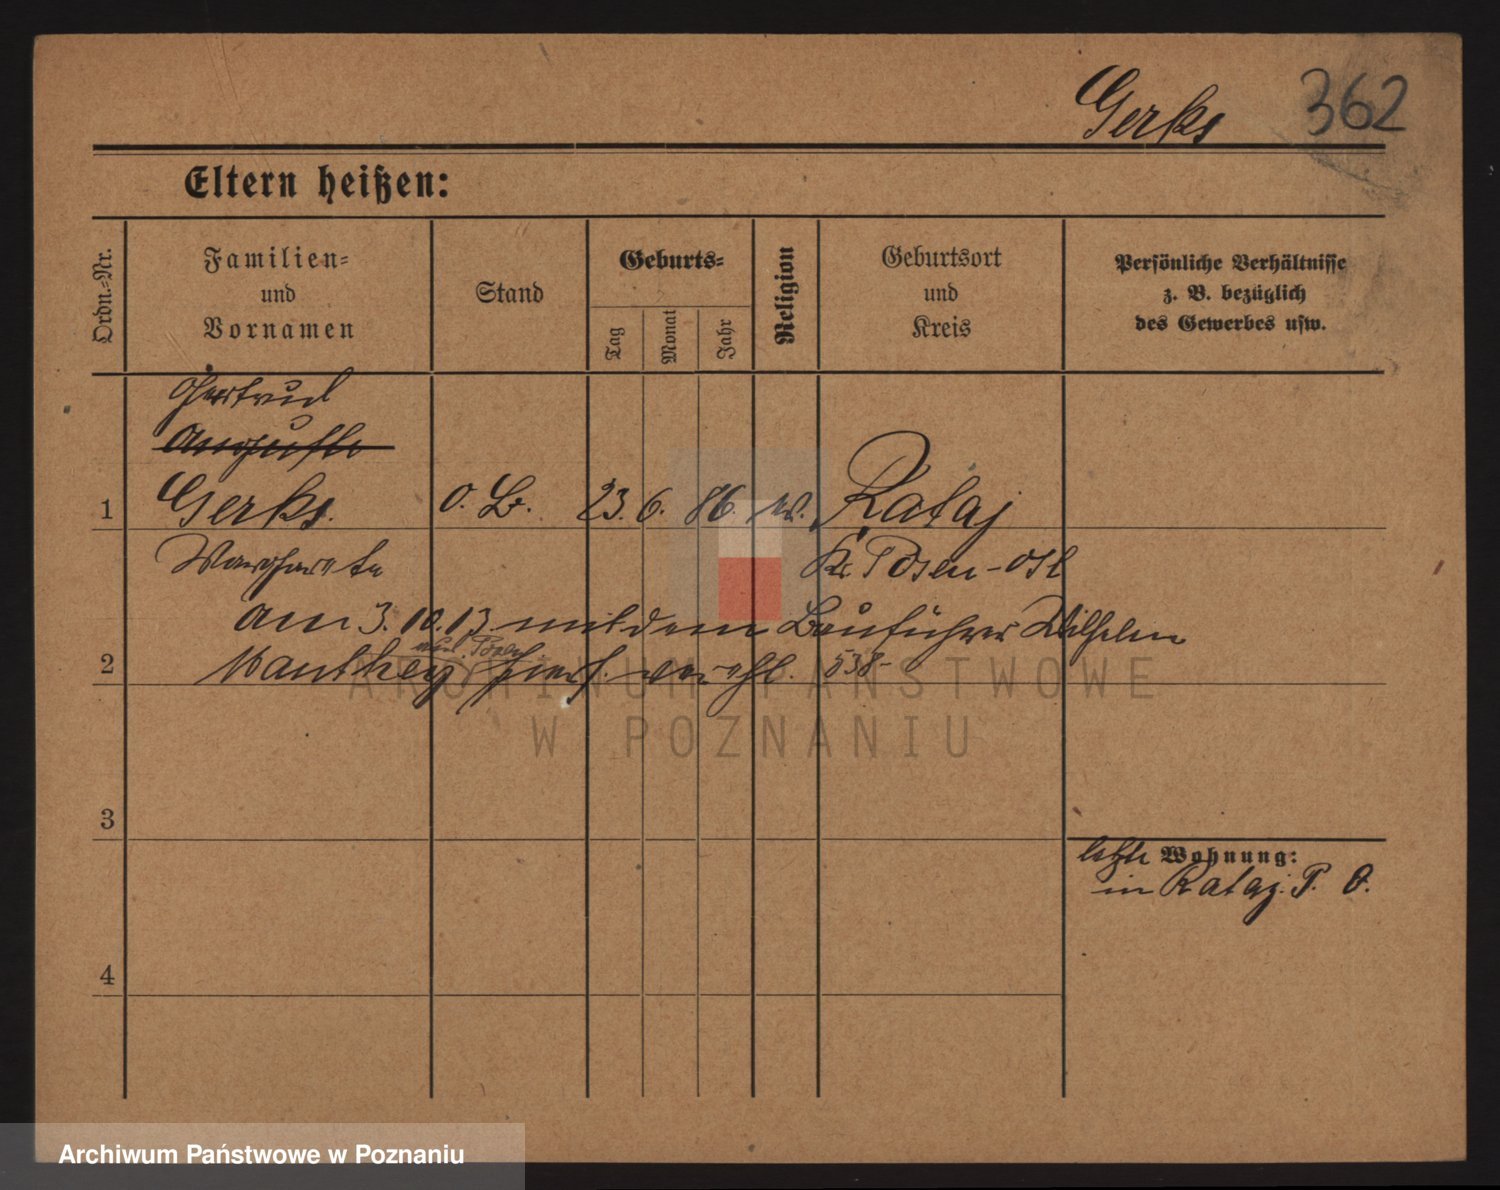 Gerks 362
Eltern heißen:
Ordn.-Nr.
Familien-
und
Vornamen
Stand
Geburts-
Tag
Monat
Jahr
Religion
Geburtsort
und
Kreis
Persönliche Verhältnisse
z. B. bezüglich
des Gewerbes usw.
Gertrud
Auguste
1 Gerks. o. B. 23. 6. 86. ev. Rataj
Margarete Kr. Posen-Ost
am 3. 10. 13 mit dem Bauführer Wilhelm
2 Manthey hier verehl. 538-
3
letzte Wohnung:
in Rataj. P. O.
4
ARCHIWUM PAŃSTWOWE
W POZNANIU
Archiwum Państwowe w Poznaniu